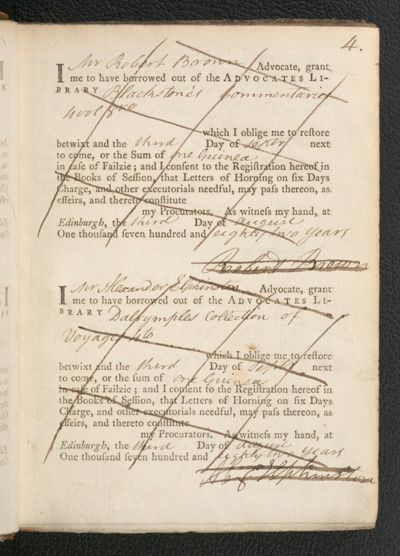 4.
I Mr Robert Brown Advocate, grant
me to have borrowed out of the ADVOCATES LI-
BRARY Blackstone's Commentaries
4 vol 8vo
which I oblige me to restore
betwixt and the third Day of Septr next
to come, or the Sum of one Guinea
in case of Failzie; and I consent to the Registration hereof in
the Books of Session, that Letters of Horning on six Days
Charge, and other executorials needful, may pass thereon, as
effeirs, and thereto constitute
my Procurators. As witness my hand, at
Edinburgh, the third Day of August
One thousand seven hundred and eighty two years
Robert Brown
I Mr Alexander Elphinston Advocate, grant
me to have borrowed out of the ADVOCATES LI-
BRARY Dalrymples Collection of
Voyages 4to
which I oblige me to restore
betwixt and the third Day of Septr next
to come, or the sum of one Guinea
in case of Failzie; and I consent to the Registration hereof in
the Books of Session, that Letters of Horning on six Days
Charge, and other executorials needful, may pass thereon, as
effeirs, and thereto constitute
my Procurators. As witness my hand, at
Edinburgh, the third Day of August
One thousand seven hundred and eighty two years
Elphinston